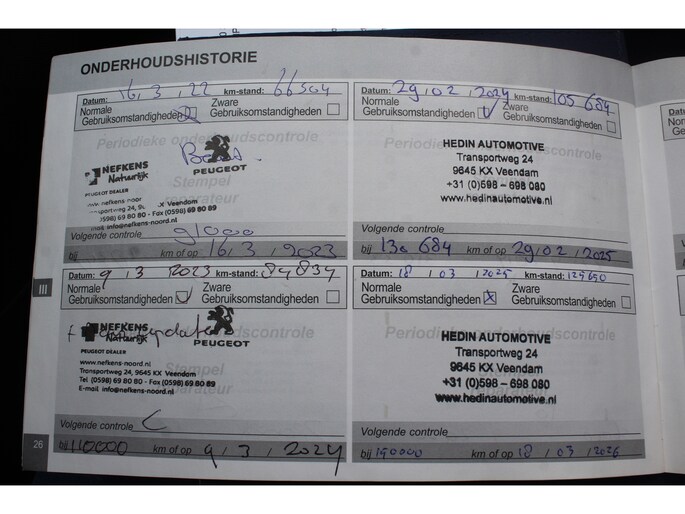 ONDERHOUDSHISTORIE
Datum: 16, 3, 22 km-stand: 66504
Normale Gebruiksomstandigheden
Zware Gebruiksomstandigheden
Periodieke onderhoudscontrole
NEFKENS
Natuurlijk
PEUGEOT DEALER
PEUGEOT
Stempel
nefkens-noord.nl
sportweg 24, 9645 KX Veendam
(0598) 69 80 80 - Fax (0598) 69 80 89
mail info@nefkens-noord.nl
Volgende controle 91000
bij km of op 16, 3, 2023
Datum: 29, 02, 2024 km-stand: 105 684
Normale Gebruiksomstandigheden
Zware Gebruiksomstandigheden
Periodieke onderhoudscontrole
HEDIN AUTOMOTIVE
Transportweg 24
9645 KX Veendam
+31 (0)598 – 698 080
www.hedinautomotive.nl
Volgende controle
bij 130 684 km of op 29, 02, 2025
III
Datum: 9, 3 2023 km-stand: 84834
Normale Gebruiksomstandigheden
Zware Gebruiksomstandigheden
NEFKENS
Natuurlijk
PEUGEOT DEALER
PEUGEOT
www.nefkens-noord.nl
Transportweg 24, 9645 KX Veendam
Tel (0598) 69 80 80 - Fax (0598) 69 80 89
E-mail info@nefkens-noord.nl
Volgende controle
bij 110000 km of op 9, 3, 2024
Datum: 18, 03, 2025 km-stand: 129650
Normale Gebruiksomstandigheden
Zware Gebruiksomstandigheden
Periodieke onderhoudscontrole
HEDIN AUTOMOTIVE
Transportweg 24
9645 KX Veendam
+31 (0)598 – 698 080
www.hedinautomotive.nl
Volgende controle
bij 190000 km of op 18, 03, 2026
26